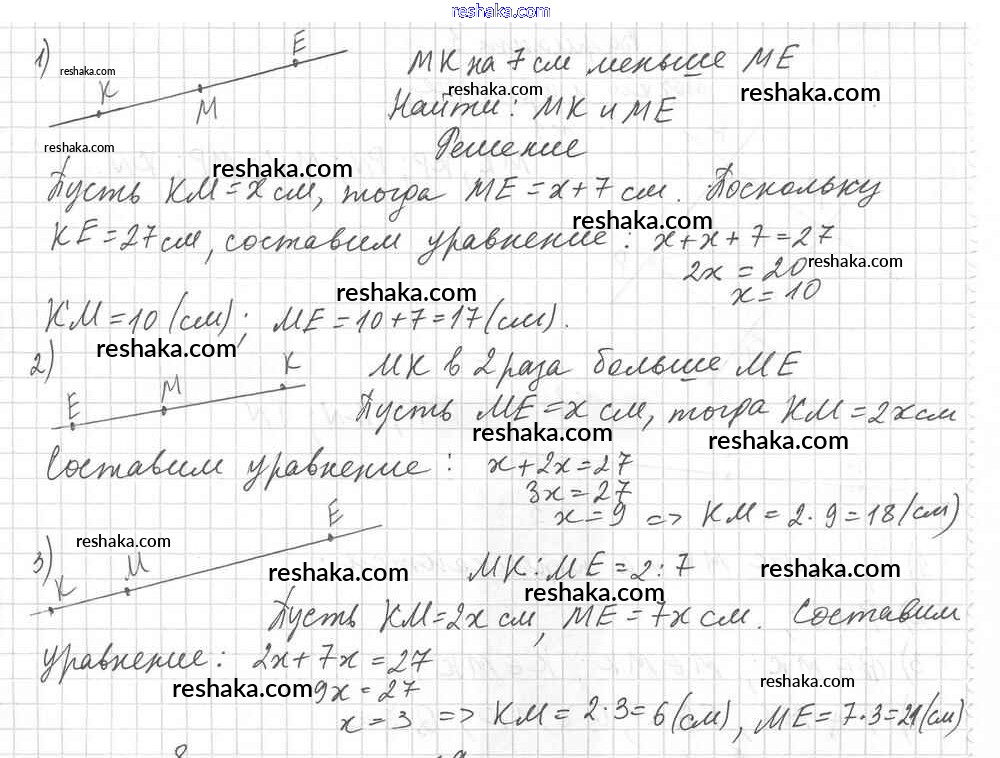 reshaka.com
1) K M E МК на 7 см меньше МЕ
reshaka.com reshaka.com
Найти: МК и МЕ
reshaka.com Решение
reshaka.com
Пусть КМ = х см, тогда МЕ = х + 7 см. Поскольку
reshaka.com
КЕ = 27 см, составим уравнение: х + х + 7 = 27
2х = 20 reshaka.com
reshaka.com х = 10
КМ = 10 (см); МЕ = 10 + 7 = 17 (см).
reshaka.com
2) E M K МК в 2 раза больше МЕ
Пусть МЕ = х см, тогда КМ = 2х см
reshaka.com reshaka.com
Составим уравнение: х + 2х = 27
3х = 27
х = 9 => КМ = 2 · 9 = 18 (см)
reshaka.com
3) K M E МК : МЕ = 2 : 7
reshaka.com reshaka.com
reshaka.com
Пусть КМ = 2х см, МЕ = 7х см. Составим
уравнение: 2х + 7х = 27
reshaka.com 9х = 27 reshaka.com
х = 3 => КМ = 2 · 3 = 6 (см), МЕ = 7 · 3 = 21 (см)